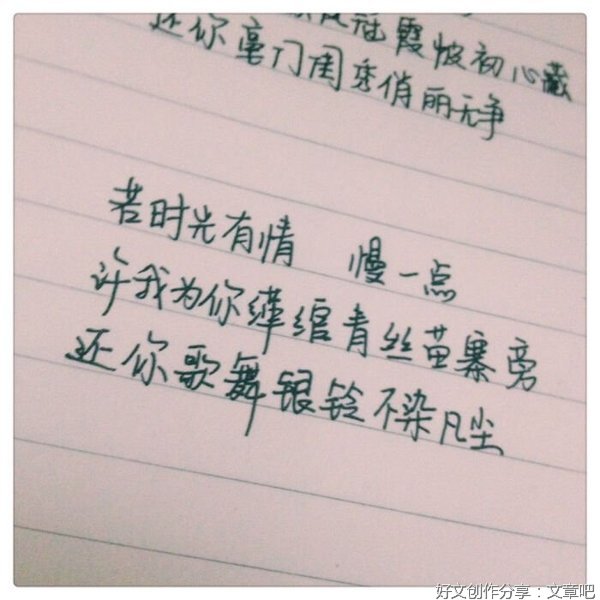 冠霞帔初心藏
还你豪门闺秀俏丽无争
若时光有情 慢一点
许我为你缠绾青丝苗寨旁
还你歌舞银铃不染凡尘
好文创作分享：文章吧